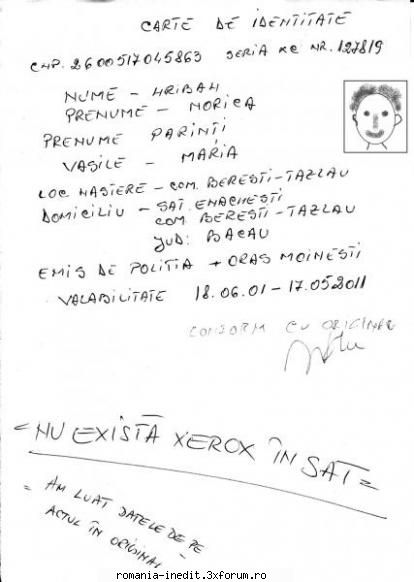 CARTE DE IDENTITATE
CNP. 2600517045863 SERIA XC NR. 127819
NUME - HRIBAN
PRENUME - NORICA
PRENUME PARINTI
VASILE - MARIA
LOC NASTERE - COM. BERESTI-TAZLAU
DOMICILIU - SAT. ENACHESTI
COM. BERESTI-TAZLAU
JUD: BACAU
EMIS DE POLITIA + ORAS MOINESTI
VALABILITATE 18.06.01 - 17.05.2011
CONFORM CU ORIGINAL
= NU EXISTĂ XEROX ÎN SAT =
= AM LUAT DATELE DE PE
ACTUL ÎN ORIGINAL
romania-inedit.3xforum.ro